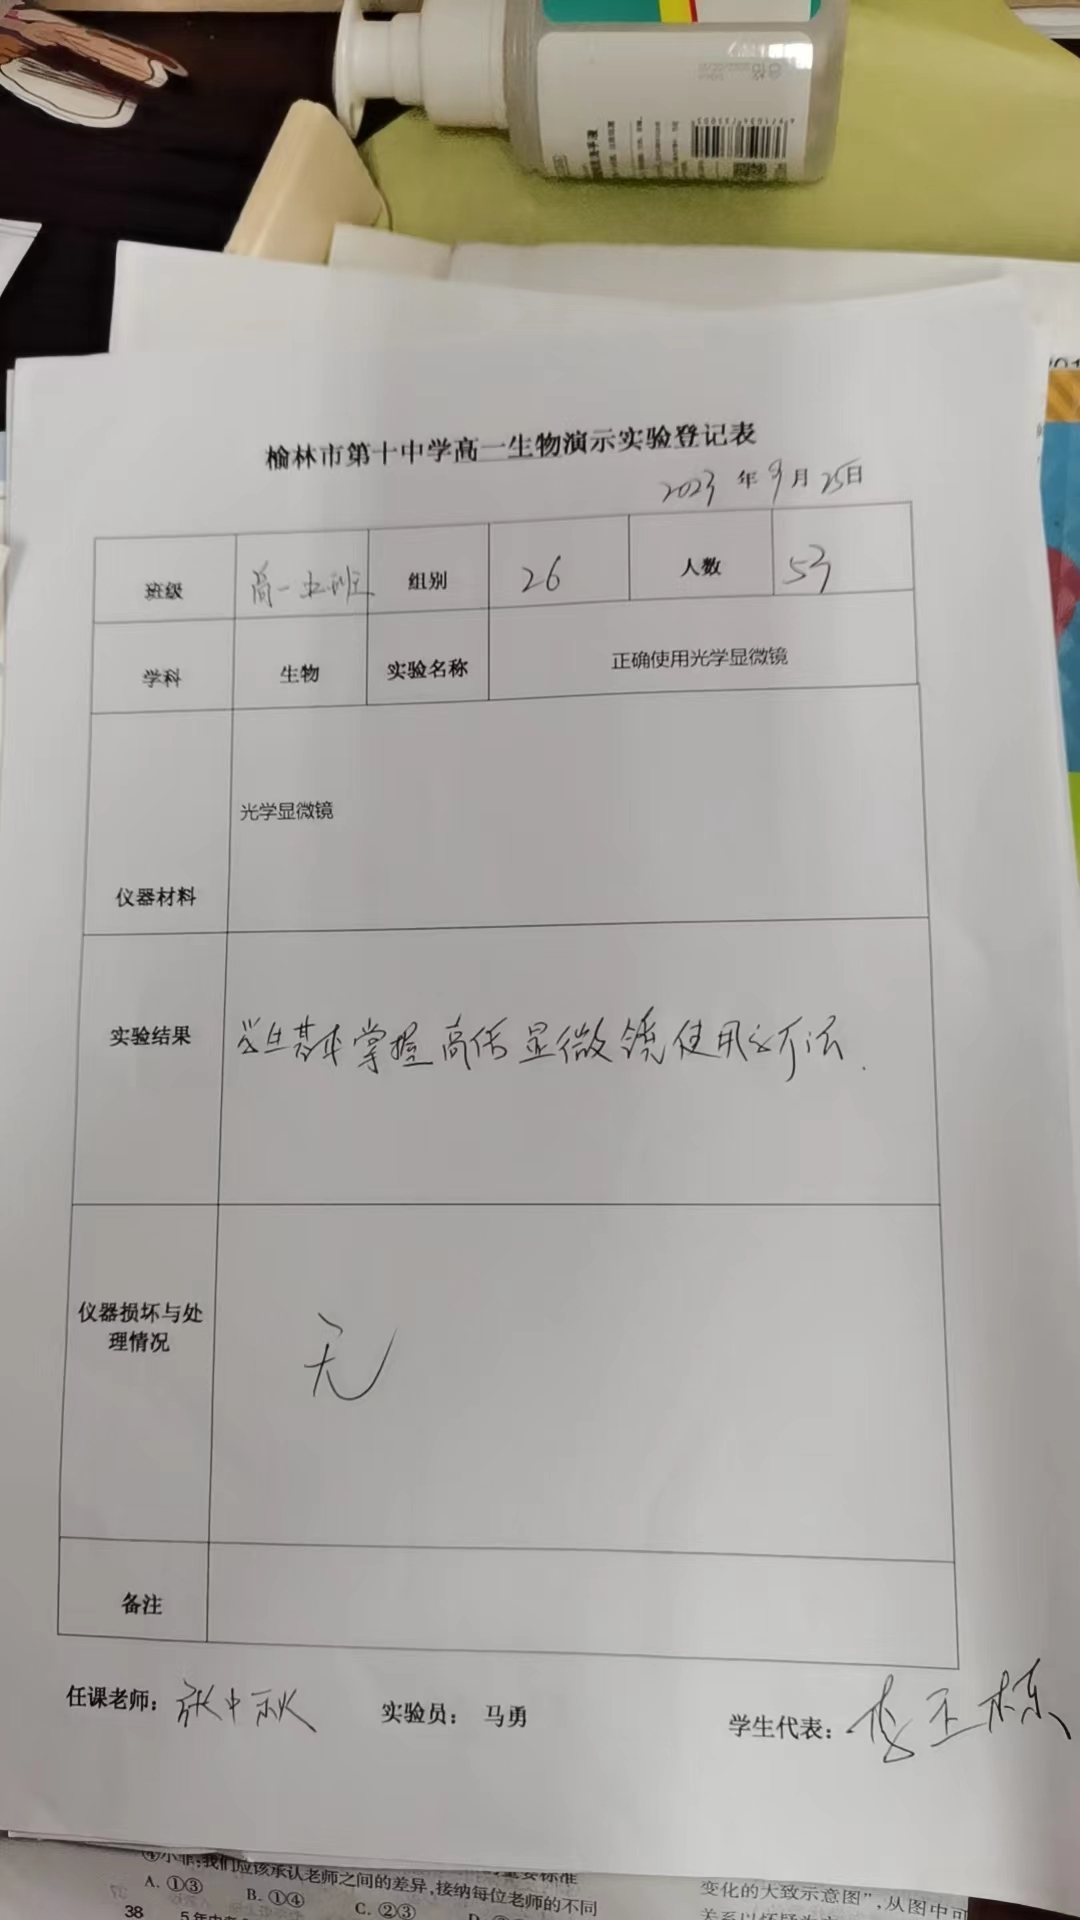 榆林市第十中学高一生物演示实验登记表
2023 年 9 月 25日
班级 高一 班 组别 26 人数 53
学科 生物 实验名称 正确使用光学显微镜
仪器材料 光学显微镜
实验结果 学生基本掌握高倍显微镜使用的方法.
仪器损坏与处
理情况
无
备注
任课老师: 张中秋 实验员: 马勇 学生代表: 李玉栋
我们应该承认老师之间的差异,接纳每位老师的不同
A. ①③ B. ①④ C. ②③
变化的大致示意图”,从图中可
38